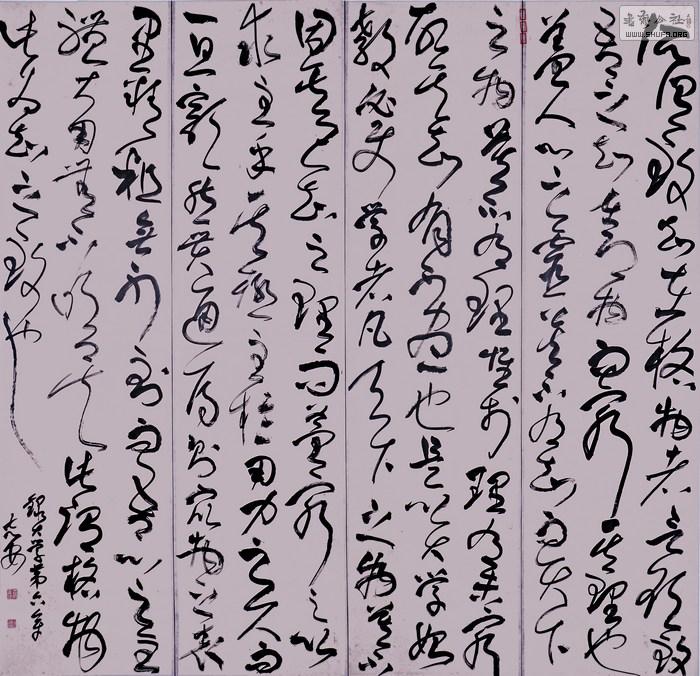 所謂致知在格物者言欲致
吾之知在即物而窮其理也
蓋人心之靈莫不有知而天下
之物莫不有理惟於理有未窮
故其知有不盡也是以大學始
教必使學者凡天下之物莫不
因其已知之理而益窮之以
求至乎其極至於用力之久而
一旦豁然貫通焉則眾物之表
里精粗無不到而吾心之全
體大用無不明矣此謂格物
此為知之致也
錄大學第六章
志安